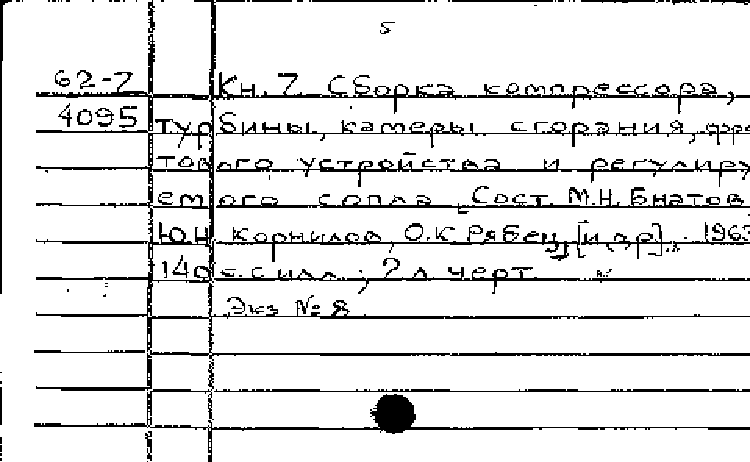 5
62-7 Кн. 7. Сборка компрессора,
4095 турбины, камеры сгорания, фро
тового устройства и регулиру
емого сопла. Сост. М.Н. Бнатов
Ю.Н. Корнилов, О.К. Рябец, [и др]. 1963
140 с. с илл.; 2 л черт.
Экз № 8